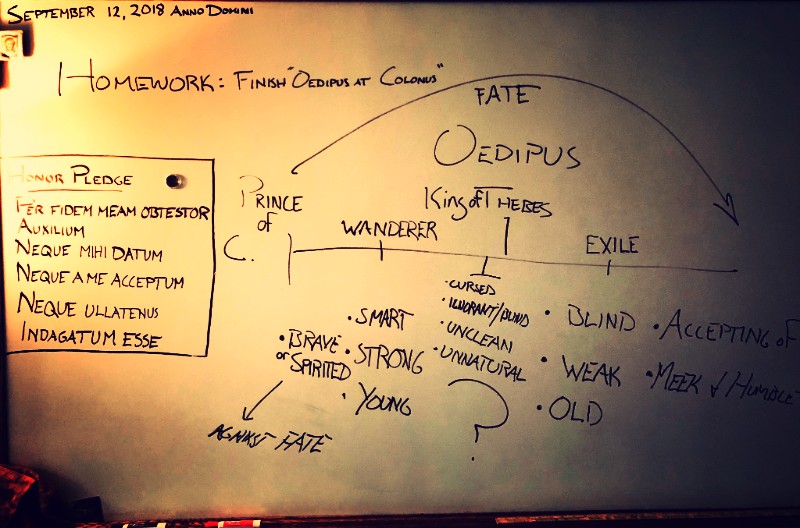 SEPTEMBER 12, 2018 ANNO DOMINI
HOMEWORK: FINISH "OEDIPUS AT COLONUS"
FATE
OEDIPUS
HONOR PLEDGE
PER FIDEM MEAM OBTESTOR
AUXILIUM
NEQUE MIHI DATUM
NEQUE A ME ACCEPTUM
NEQUE ULLATENUS
INDAGATUM ESSE
PRINCE
OF
C.
WANDERER
King of THEBES
EXILE
• BRAVE
or SPIRITED
AGAINST FATE
• SMART
• STRONG
• YOUNG
• CURSED
• IGNORANT/BLIND
• UNCLEAN
• UNNATURAL
?
• BLIND
• WEAK
• OLD
• ACCEPTING OF
• MEEK & HUMBLE